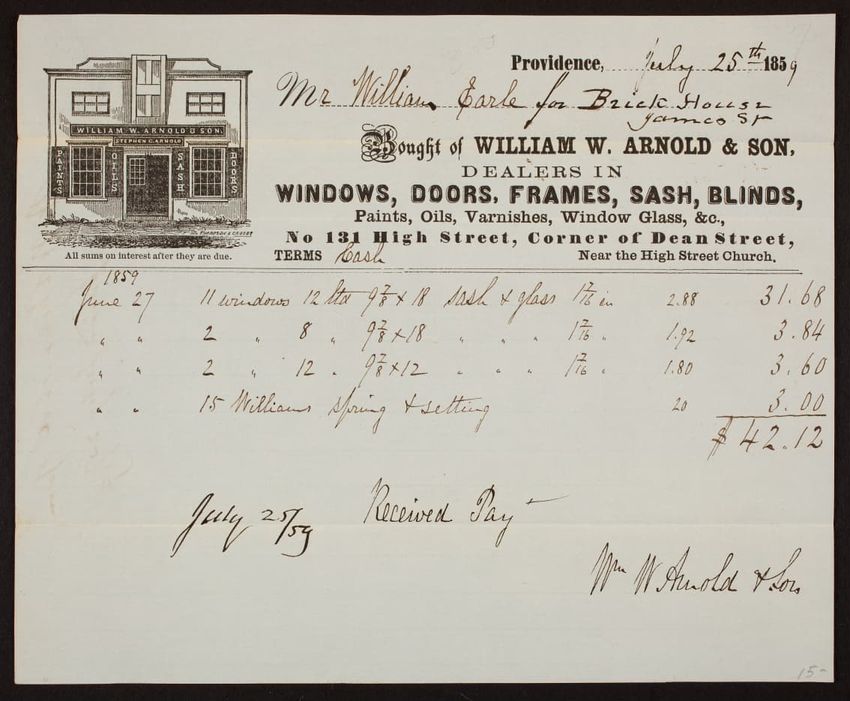 Providence, July 25th 1859
Mr William Earle for Brick House
James St
Bought of WILLIAM W. ARNOLD & SON,
DEALERS IN
WINDOWS, DOORS, FRAMES, SASH, BLINDS,
Paints, Oils, Varnishes, Window Glass, &c.,
No 131 High Street, Corner of Dean Street,
TERMS Cash Near the High Street Church.
WILLIAM W. ARNOLD & SON.
STEPHEN C. ARNOLD
PAINTS OILS SASH DOORS
All sums on interest after they are due.
1859
June 27 11 windows 12 ltd 9 7/8 x 18 sash & glass 1 7/16 in 2.88 31.68
" " 2 " 8 " 9 7/8 x 18 " " " 1 7/16 " 1.92 3.84
" " 2 " 12 " 9 7/8 x 12 " " " 1 7/16 " 1.80 3.60
" " 15 Williams spring & setting 20 3.00
$ 42.12
July 25/59 Received Payt
Wm W Arnold & Son
15-